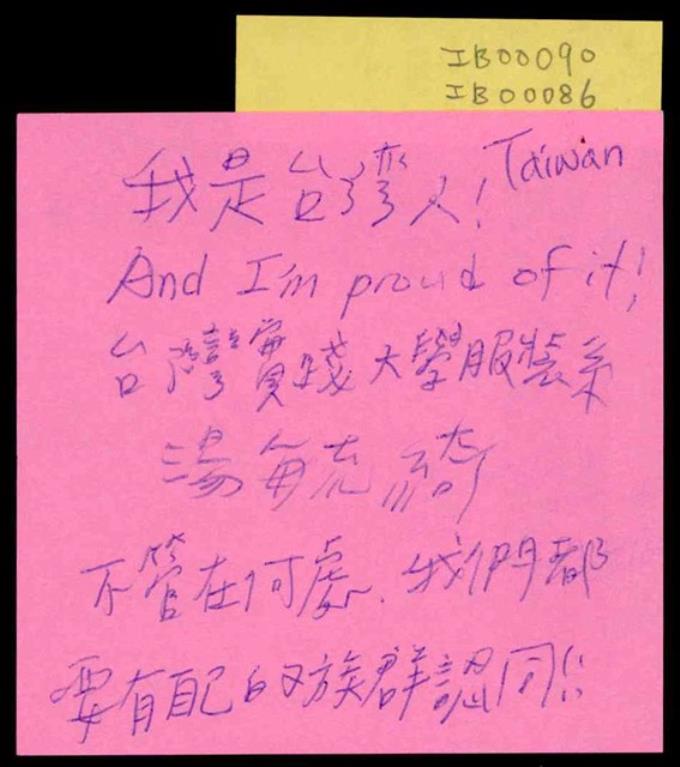 IB00090
IB00086
我是台灣人! Taiwan
And I'm proud of it!
台灣實踐大學服裝系
湯每克綺
不管在何處、我們都
要有自己的族群認同!!